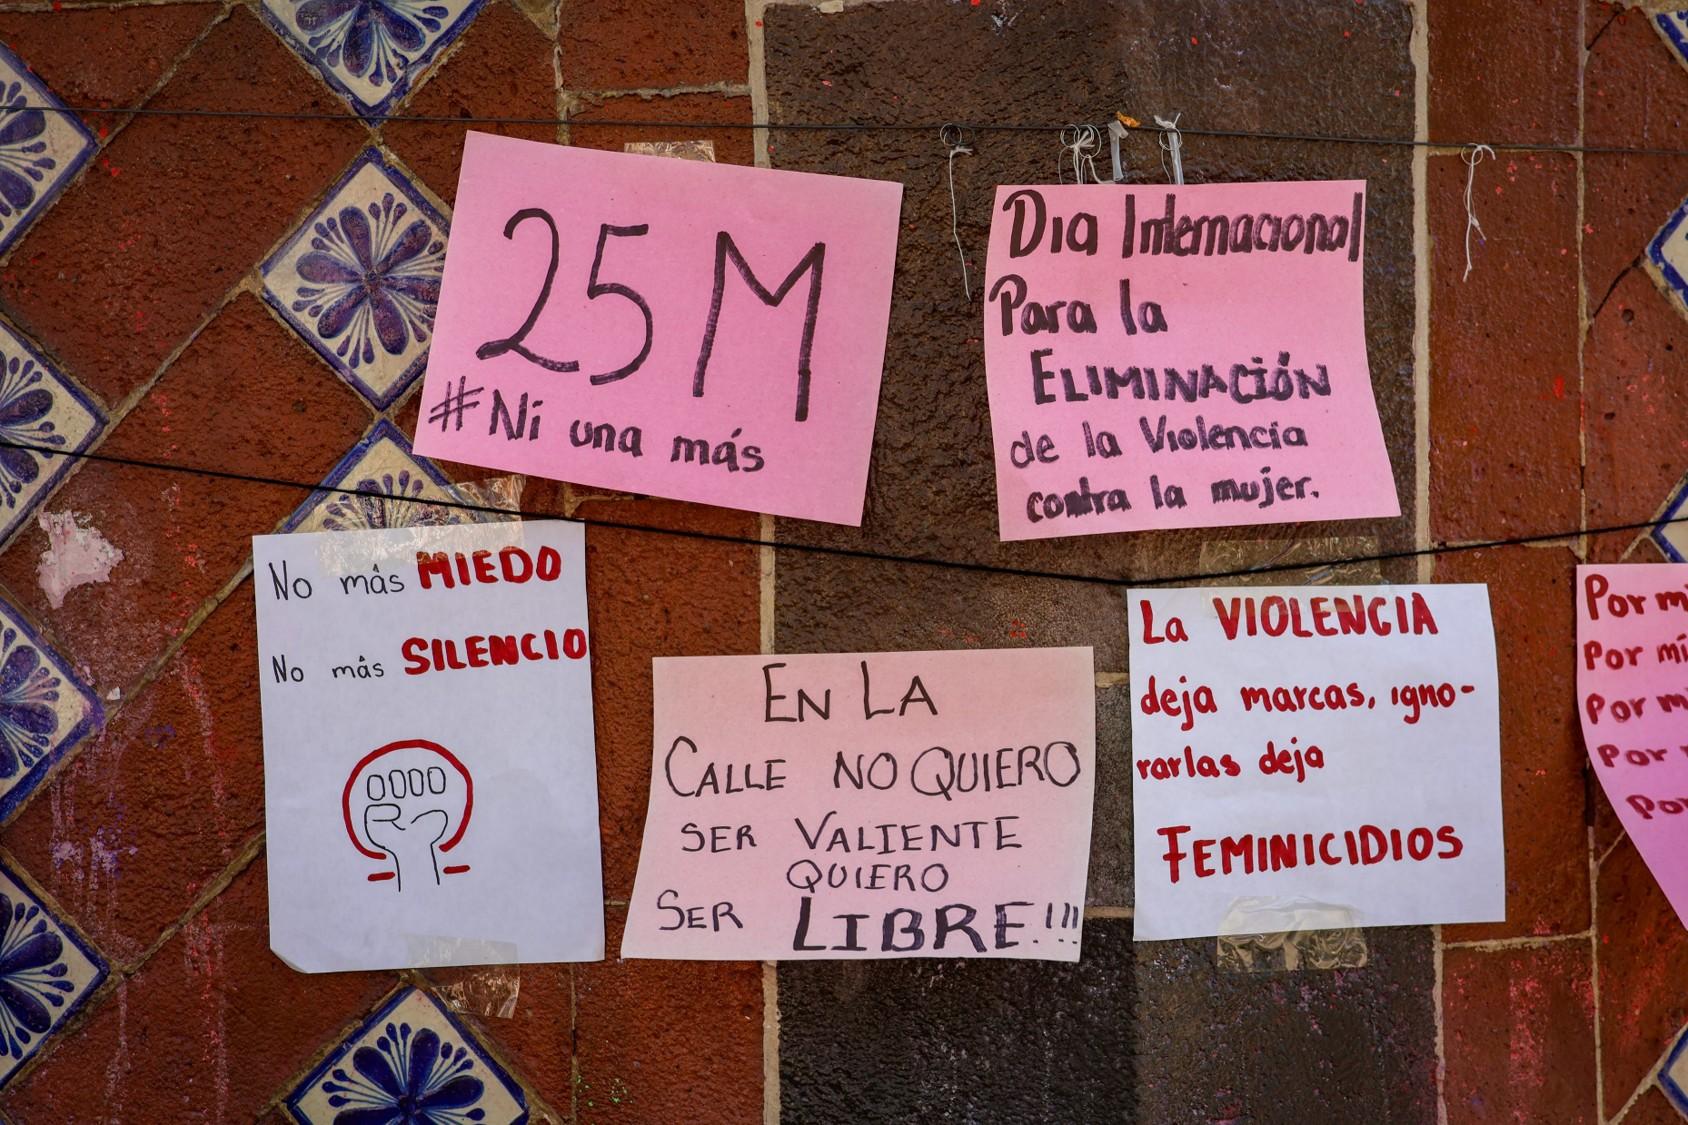 25M
#Ni una más
Dia Internacional
Para la
ELIMINACIÓN
de la Violencia
contra la mujer.
No más MIEDO
No más SILENCIO
EN LA
CALLE NO QUIERO
SER VALIENTE
QUIERO
SER LIBRE!!!
La VIOLENCIA
deja marcas, igno-
rarlas deja
FEMINICIDIOS
Por
Por
Por
Por
Por